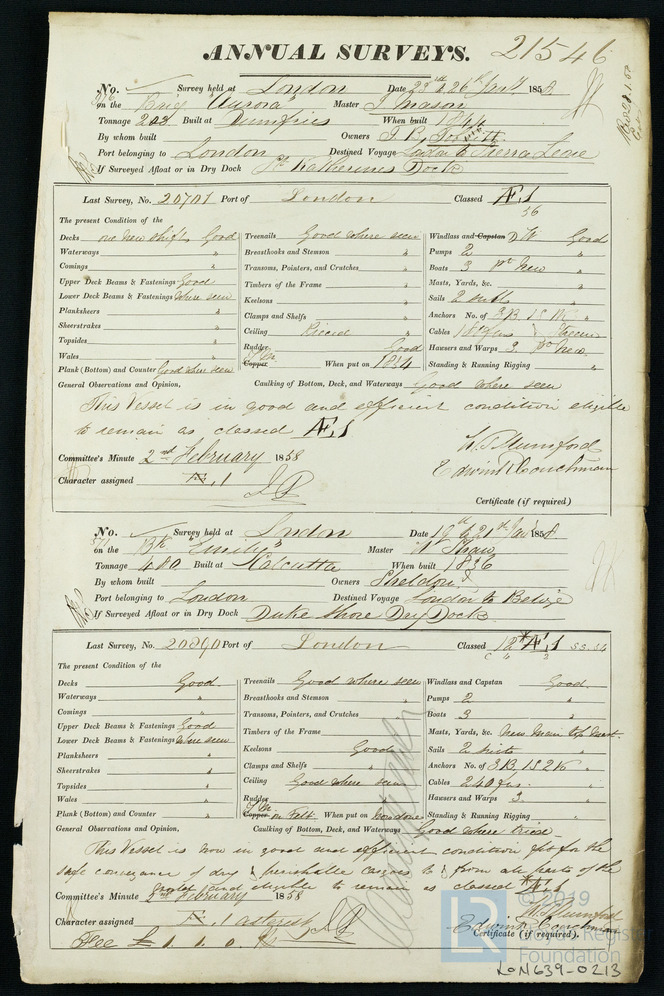 ANNUAL SURVEYS. 21546
No. Survey held at London Date 23rd & 26th Jany 1858
on the Brig "Aurora" Master J Mason
Tonnage 203 Built at Dumfries When built 1844
By whom built Owners J B
Port belonging to London Destined Voyage London to Sierra Leone
If Surveyed Afloat or in Dry Dock St Katherines Dock
Last Survey, No. 20707 Port of London Classed Æ 1
56
The present Condition of the
Decks one new shift, Good Treenails Good where seen Windlass and Capstan Good
Waterways " Breasthooks and Stemson " Pumps 2 "
Comings " Transoms, Pointers, and Crutches " Boats 3 pt New "
Upper Deck Beams & Fastenings Good Timbers of the Frame " Masts, Yards, &c. "
Lower Deck Beams & Fastenings where seen Keelsons " Sails 2 suits "
Planksheers " Clamps and Shelfs " Anchors No. of 3 B. 1 S "
Sheerstrakes " Ceiling Cables
Topsides " Rudder Good Hawsers and Warps 3. pt New.
Wales " Copper When put on 1854 Standing & Running Rigging "
Plank (Bottom) and Counter Good where seen
General Observations and Opinion, Caulking of Bottom, Deck, and Waterways Good where seen
This Vessel is in good and efficient condition eligible
to remain as classed Æ 1
W. S. Mumford
Committee's Minute 2nd February 1858 Edwin D Couchman
Character assigned Æ. 1
Certificate (if required)
No. Survey held at London Date 19th & 21st Jany 1858
on the Bk "Emily" Master W Thaw
Tonnage 480 Built at Calcutta When built 1836
By whom built Owners Sheldon &
Port belonging to London Destined Voyage London to Belize
If Surveyed Afloat or in Dry Dock Duke Shore Dry Dock
Last Survey, No. 20890 Port of London Classed 12 *Æ 1 SS. 54
The present Condition of the
Decks Good Treenails Good where seen Windlass and Capstan Good
Waterways " Breasthooks and Stemson " Pumps 2 "
Comings " Transoms, Pointers, and Crutches " Boats 3 "
Upper Deck Beams & Fastenings Good Timbers of the Frame Masts, Yards, &c. New Main top mast.
Lower Deck Beams & Fastenings where seen Keelsons Good Sails 2 suits "
Planksheers " Clamps and Shelfs " Anchors No. of 3 B. 1 S 2 K "
Sheerstrakes " Ceiling Good where seen Cables 240 fms. "
Topsides " Rudder Hawsers and Warps 3. "
Wales " Copper on Felt When put on now done Standing & Running Rigging "
Plank (Bottom) and Counter "
General Observations and Opinion, Caulking of Bottom, Deck, and Waterways Good where tried
This Vessel is now in good and efficient condition fit for the
safe conveyance of dry & perishable cargoes to & from all parts of the
world and eligible to remain as classed *Æ 1
Committee's Minute 2nd February 1858 W. S. Mumford
Character assigned Æ 1 asterisk Edwin D Couchman
Certificate (if required).
Fee £ 1. 1. 0.
© 2019
LR Lloyd's Register
Foundation
LON639-0213